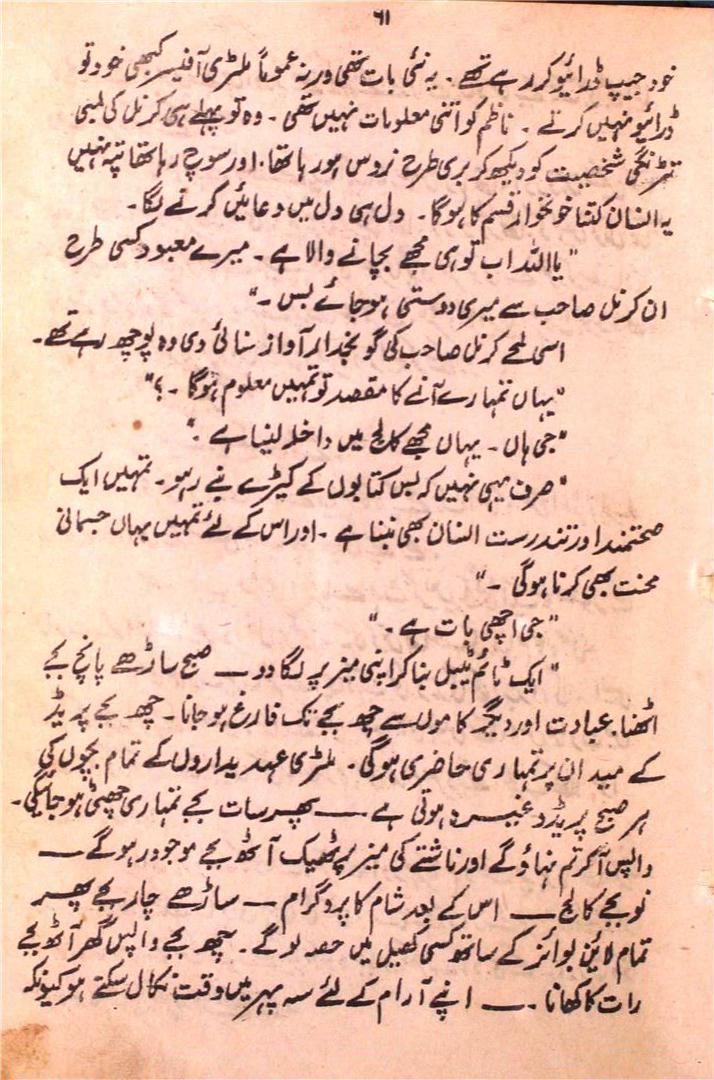 ۶۱
خود جیپ ڈرائیو کر رہے تھے۔ یہ نئی بات تھی ورنہ عموماً ملٹری آفیسر کبھی خود تو
ڈرائیو نہیں کرتے۔ ناظم کو اتنی معلومات نہیں تھی۔ وہ تو پہلے ہی کرنل کی لمبی
تڑنگی شخصیت کو دیکھ کر بری طرح نروس ہو رہا تھا۔ اور سوچ رہا تھا پتہ نہیں
یہ انسان کتنا خونخوار قسم کا ہوگا۔ دل ہی دل میں دعائیں کرنے لگا۔
"یا اللہ اب تو ہی مجھے بچانے والا ہے۔ میرے معبود کسی طرح
ان کرنل صاحب سے میری دوستی ہو جائے بس۔"
اسی لمحے کرنل صاحب کی گونجدار آواز سنائی دی وہ پوچھ رہے تھے۔
"یہاں تمہارے آنے کا مقصد تو تمہیں معلوم ہوگا۔؟"
"جی ہاں۔ یہاں مجھے کالج میں داخلہ لینا ہے۔"
"صرف یہی نہیں کہ بس کتابوں کے کیڑے بنے رہو۔ تمہیں ایک
صحتمند اور تندرست انسان بھی بننا ہے۔ اور اس کے لئے تمہیں یہاں جسمانی
محنت بھی کرنا ہوگی۔"
"جی اچھی بات ہے۔"
"ایک ٹائم ٹیبل بنا کر اپنی میز پر لگا دو — صبح ساڑھے پانچ بجے
اٹھنا۔ عبادت اور دیگر کاموں سے چھ بجے تک فارغ ہو جانا۔ چھ بجے پریڈ
کے میدان پر تمہاری حاضری ہوگی۔ ملٹری عہدیداروں کے تمام بچوں کی
ہر صبح پریڈ وغیرہ ہوتی ہے — پھر سات بجے تمہاری چھٹی ہو جائیگی۔
واپس آ کر تم نہاؤ گے اور ناشتے کی میز پر ٹھیک آٹھ بجے موجود رہو گے —
نو بجے کالج — اس کے بعد شام کا پروگرام — ساڑھے چار بجے پھر
تمام لائین بوائز کے ساتھ کسی کھیل میں حصہ لو گے۔ چھ بجے واپس گھر آٹھ بجے
رات کا کھانا۔ — اپنے آرام کے لئے سہ پہر میں وقت نکال سکتے ہو کیونکہ